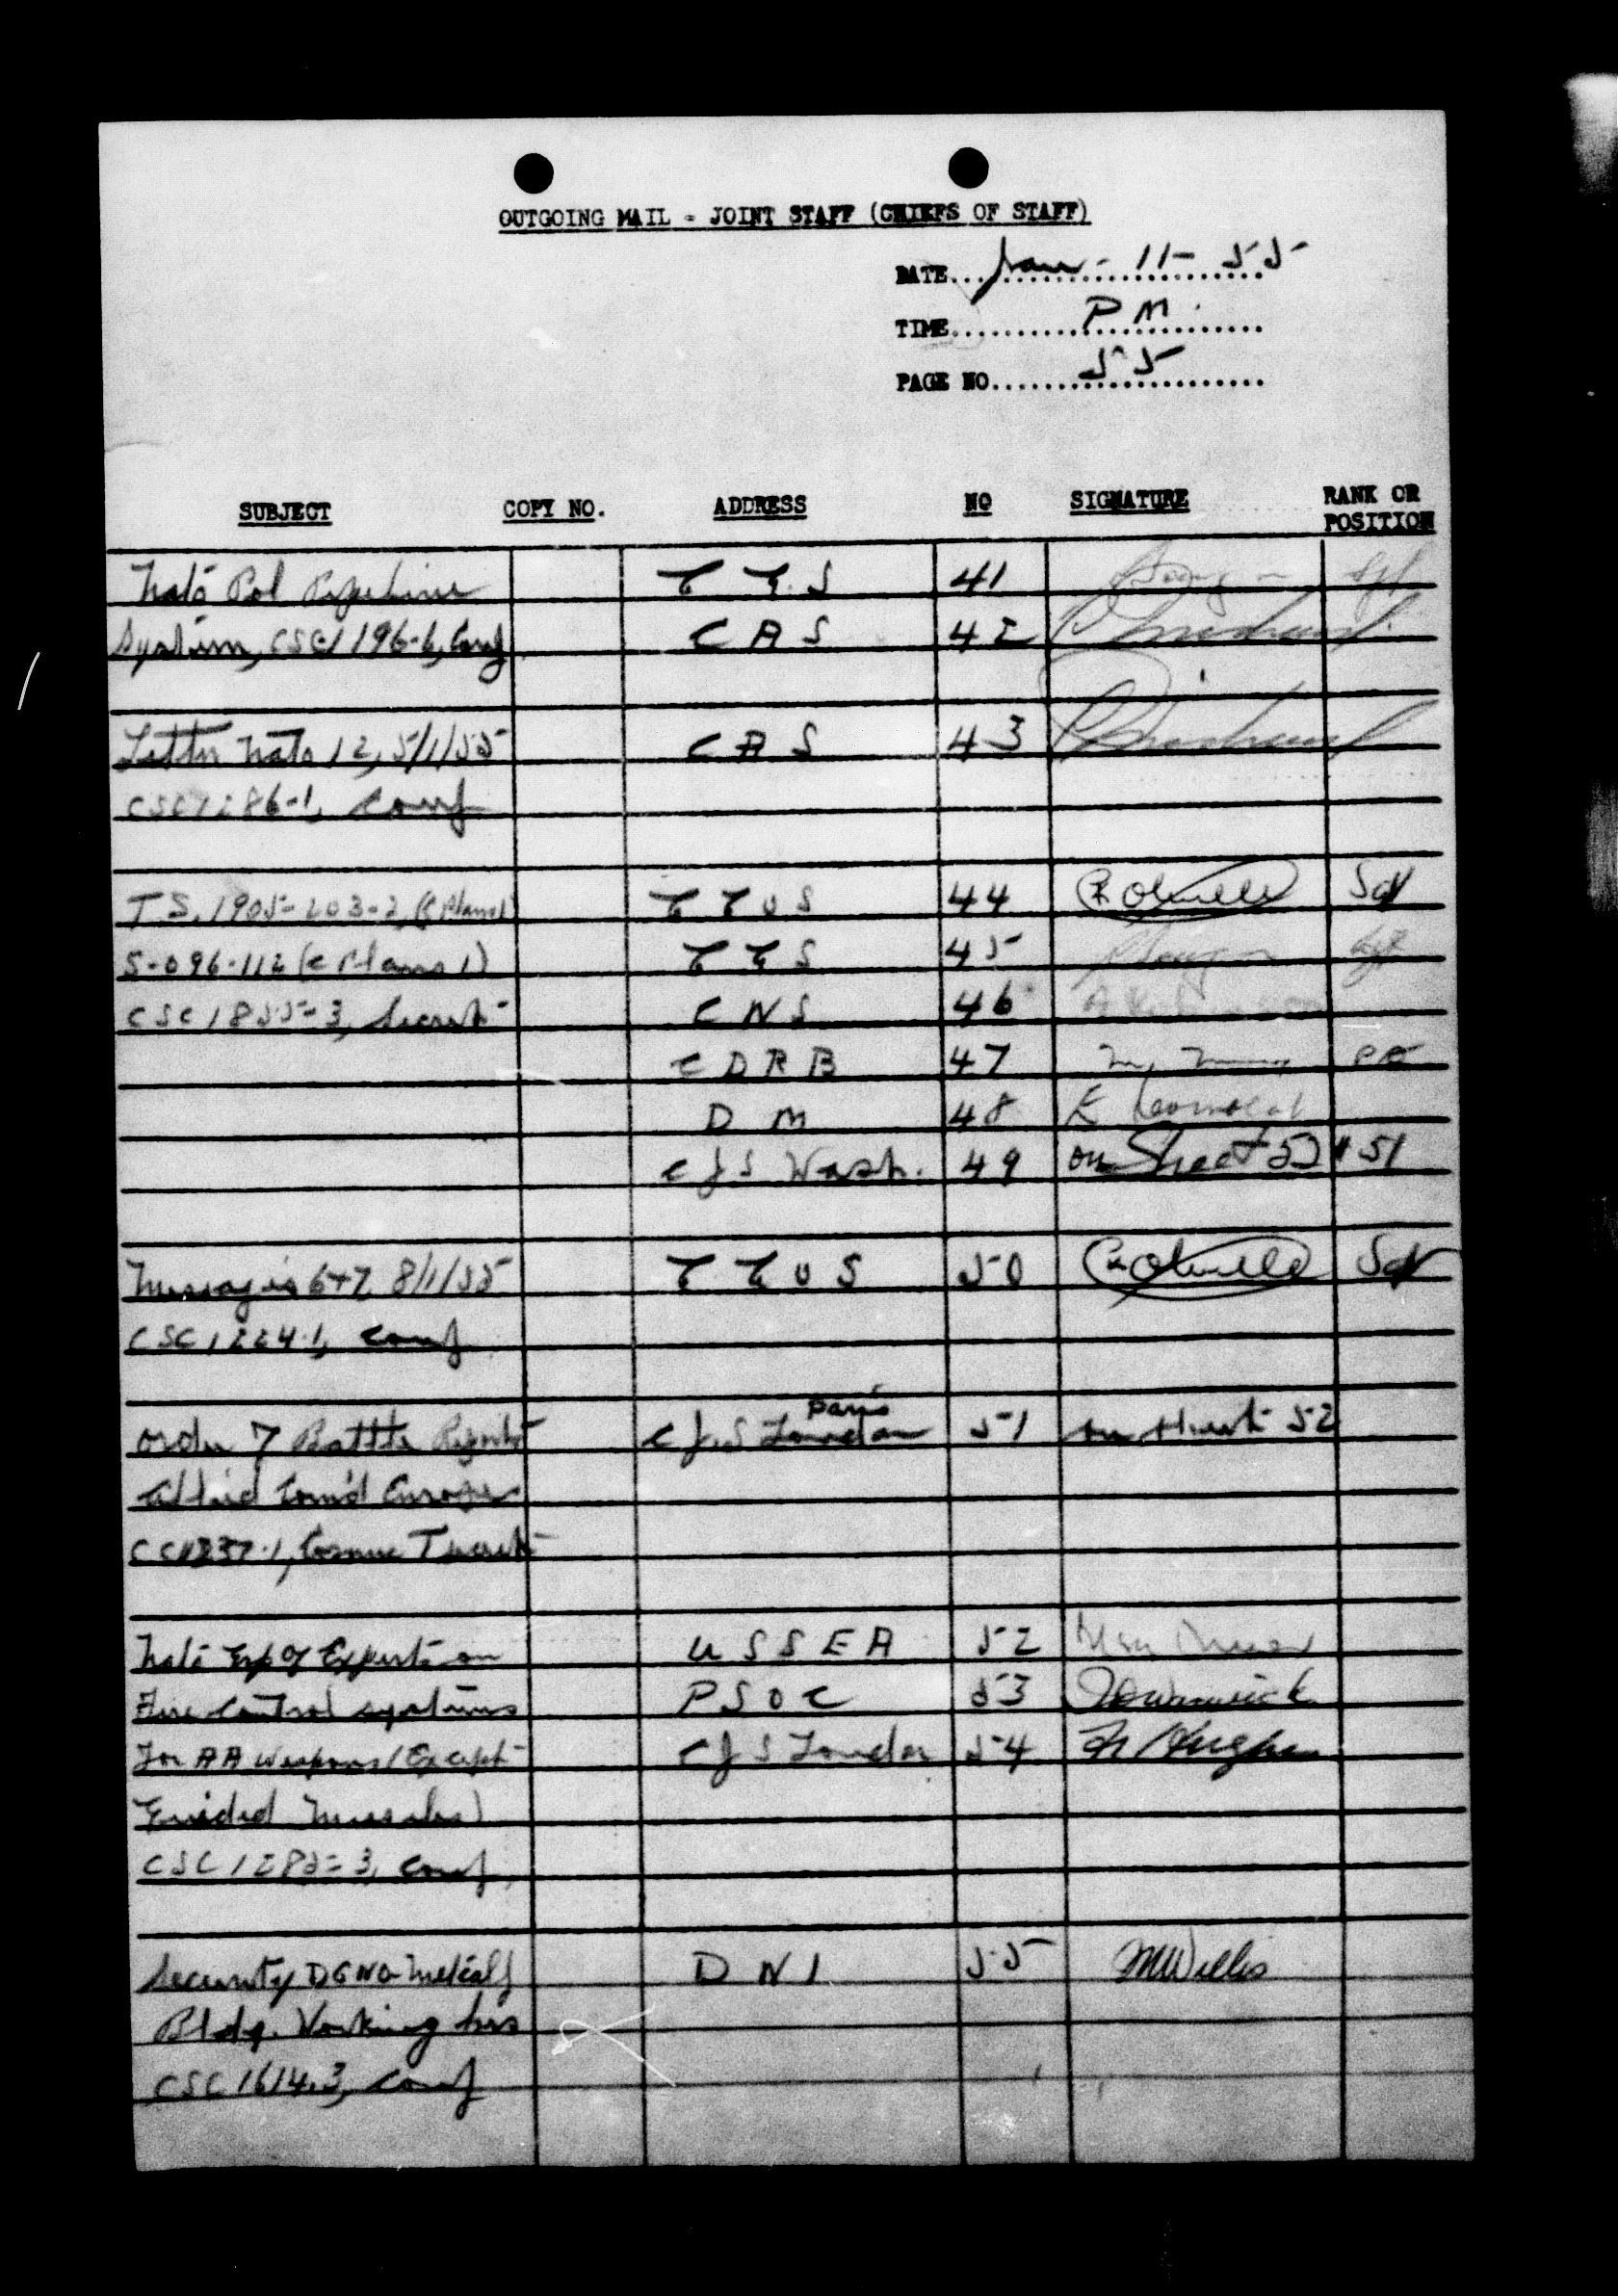 OUTGOING MAIL - JOINT STAFF (CHIEFS OF STAFF)
DATE Jan - 11 - 55
TIME P M.
PAGE NO. 55
SUBJECT COPY NO. ADDRESS NO SIGNATURE RANK OR POSITION
Nato Pol Pipeline C G S 41
System, CSC 1196-6, Conf C A S 42
Letter Nato 12, 5/1/55 C A S 43
CSC 1286-1, Conf
T S. 1905-203-2, (C Plans) C G U S 44 Sgt
S-096-112 (C Plans 1) C G S 45
CSC 1855-3, Secret C N S 46
C D R B 47
D M 48
C J S Wash. 49 on Sheet 52 # 51
Messages 6+7, 8/1/55 C G U S 50 Sgt
CSC 1224-1, Conf
Order of Battle Report C J S London Paris 51 on sheet 52
Allied Com'd Europe
1237-1, Cosmic T Secret
Nato Grp of Experts on U S S E A 52
Fire Control systems P S O C 53
For AA Weapons (Except C J S London 54 Hughes
Guided Missiles)
CSC 1285-3, Conf
Security DGNO Metcalf D N I 55 M Willis
Bldg. Working hrs
CSC 1614.3, Conf